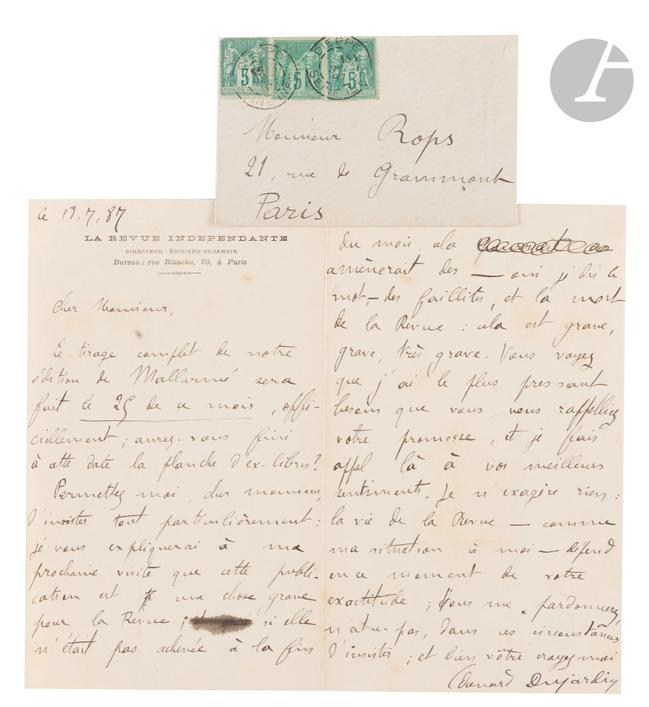 5 5 5
DIEPPE
Monsieur Rops
21, rue de Grammont
Paris
le 18.7.87
LA REVUE INDEPENDANTE
DIRECTEUR : ÉDOUARD DUJARDIN
Bureau : rue Blanche, 79, à Paris
Cher Monsieur,
Le tirage complet de notre
édition de Mallarmé sera
fait le 25 de ce mois, offi-
ciellement ; aurez-vous fini
à cette date la planche d'ex-libris?
Permettez moi, cher monsieur,
d'insister tout particulièrement :
je vous expliquerai à ma
prochaine visite que cette publi-
cation est une chose grave
pour la Revue ; si elle
n'était pas achevée à la fin
du mois, cela
amènerait des — oui j'dis le
mot — des faillites, et la mort
de la Revue : cela est grave,
grave, très grave. Vous voyez
que j'ai le plus pressant
besoin que vous vous rappelliez
votre promesse, et je fais
appel là à vos meilleurs
sentiments. Je n'exagère rien :
la vie de la Revue — comme
ma situation à moi — dépend
en ce moment de votre
exactitude ; Vous me pardonnerez,
n'est-pas, dans ces circonstances
d'insister ; et bien vôtre croyez moi
Édouard Dujardin